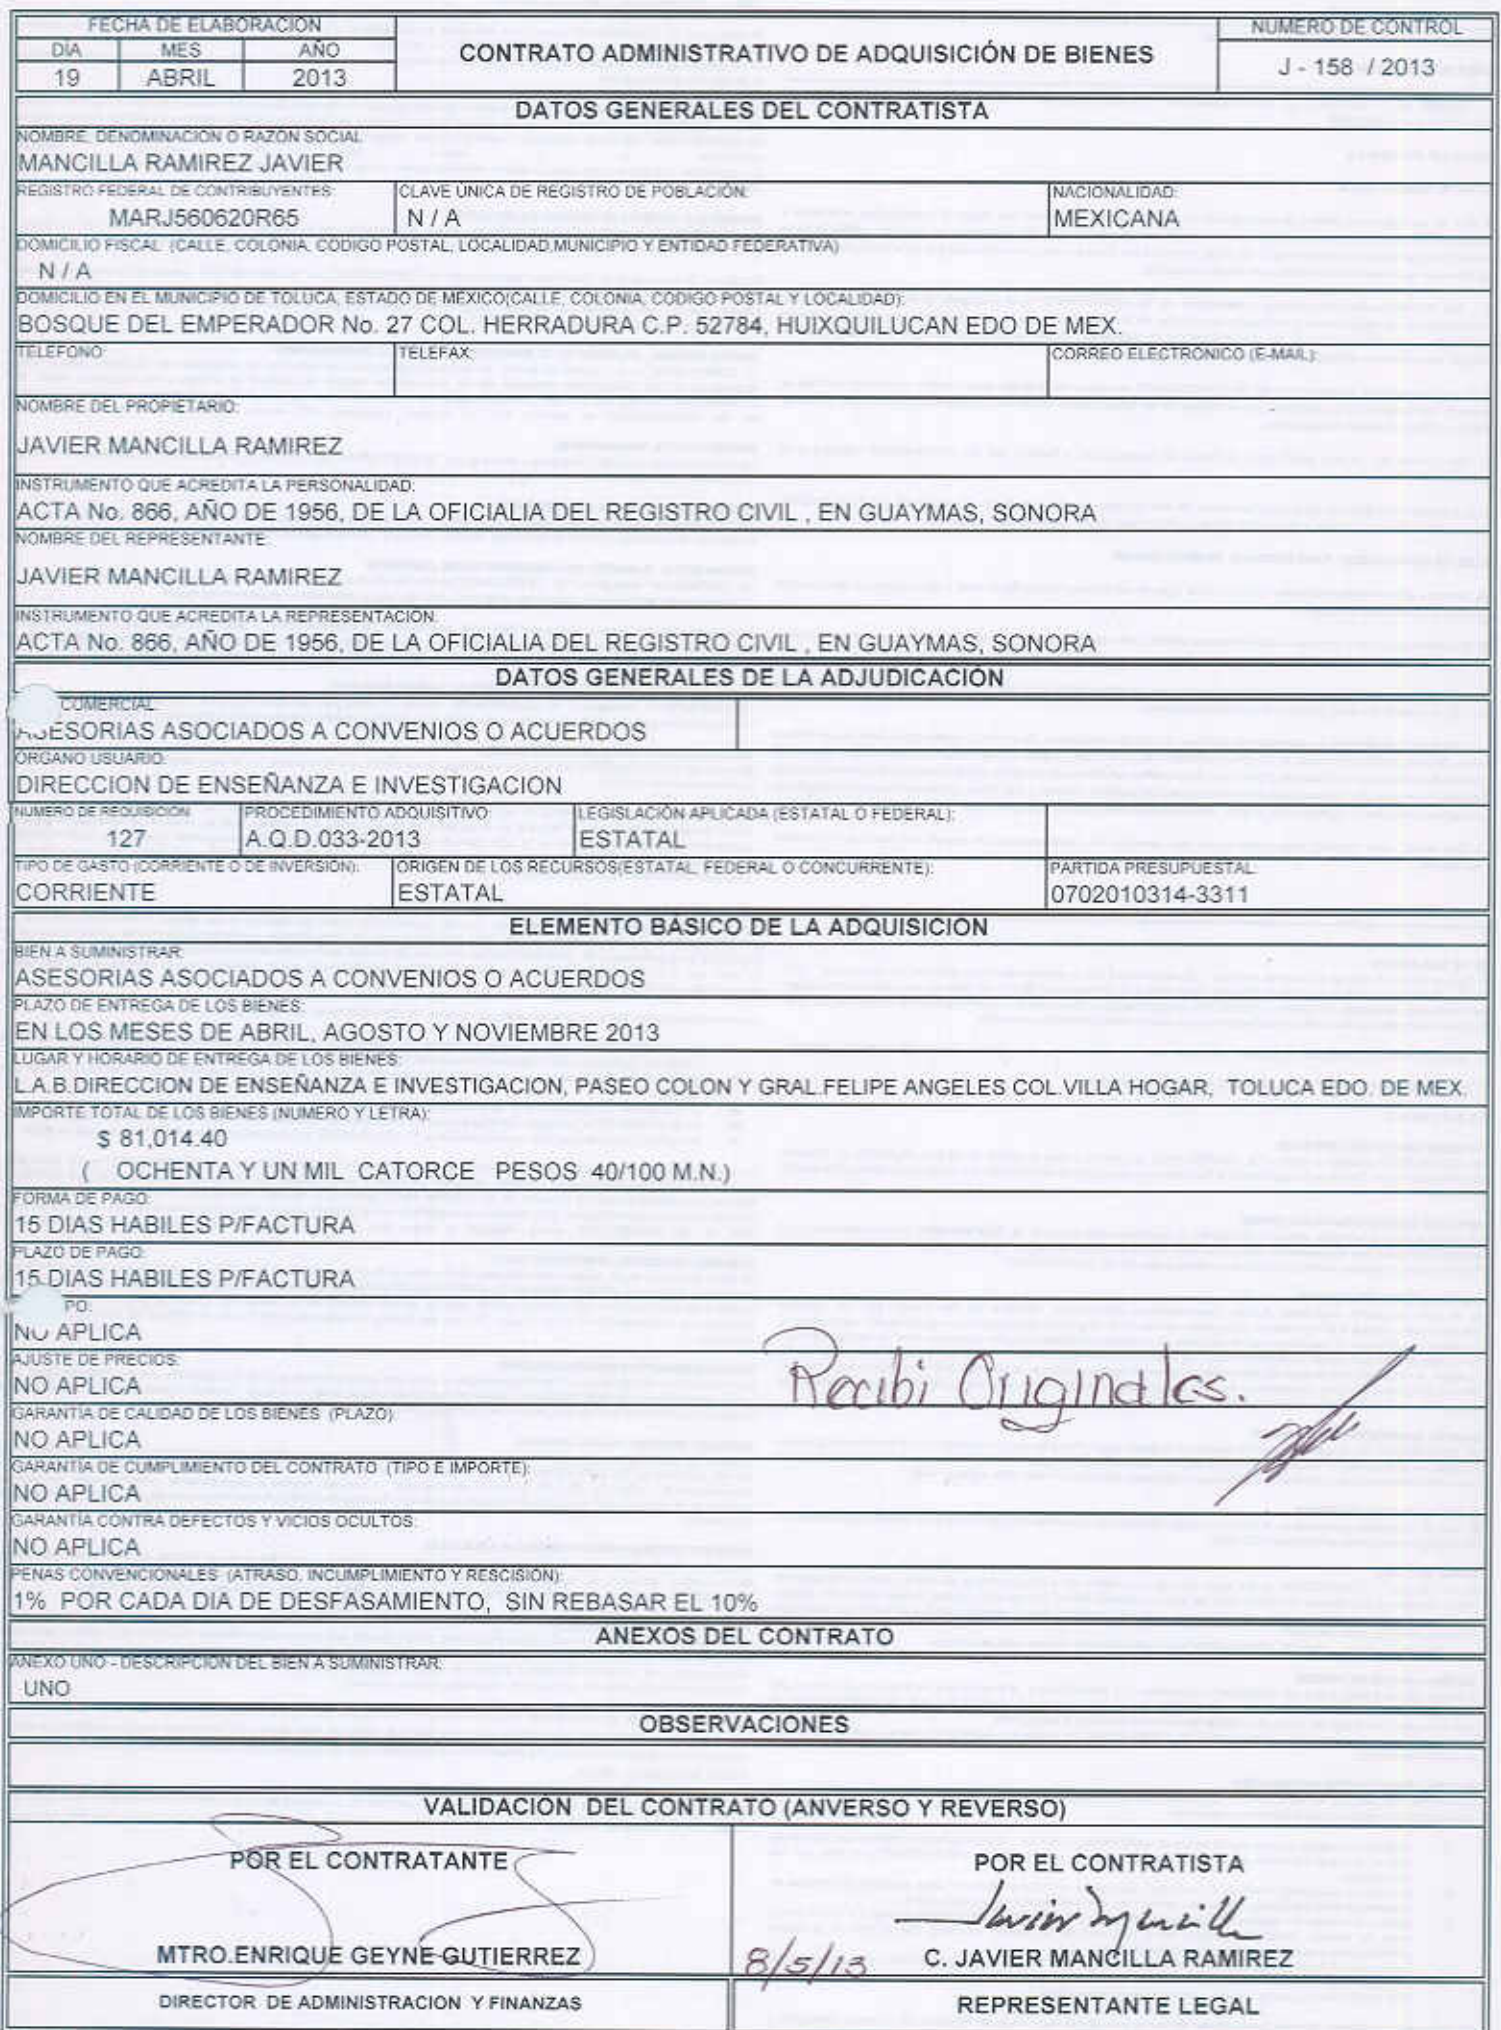 FECHA DE ELABORACION
DÍA MES AÑO
19 ABRIL 2013
CONTRATO ADMINISTRATIVO DE ADQUISICIÓN DE BIENES
NUMERO DE CONTROL
J - 158 / 2013
DATOS GENERALES DEL CONTRATISTA
NOMBRE, DENOMINACION O RAZON SOCIAL
MANCILLA RAMIREZ JAVIER
REGISTRO FEDERAL DE CONTRIBUYENTES: CLAVE ÚNICA DE REGISTRO DE POBLACIÓN: NACIONALIDAD:
MARJ560620R65 N / A MEXICANA
DOMICILIO FISCAL (CALLE, COLONIA, CODIGO POSTAL, LOCALIDAD,MUNICIPIO Y ENTIDAD FEDERATIVA)
N / A
DOMICILIO EN EL MUNICIPIO DE TOLUCA, ESTADO DE MEXICO(CALLE, COLONIA, CODIGO POSTAL Y LOCALIDAD):
BOSQUE DEL EMPERADOR No. 27 COL. HERRADURA C.P. 52784, HUIXQUILUCAN EDO DE MEX.
TELEFONO: TELEFAX: CORREO ELECTRONICO (E-MAIL):
NOMBRE DEL PROPIETARIO:
JAVIER MANCILLA RAMIREZ
INSTRUMENTO QUE ACREDITA LA PERSONALIDAD:
ACTA No. 866, AÑO DE 1956, DE LA OFICIALIA DEL REGISTRO CIVIL , EN GUAYMAS, SONORA
NOMBRE DEL REPRESENTANTE:
JAVIER MANCILLA RAMIREZ
INSTRUMENTO QUE ACREDITA LA REPRESENTACION:
ACTA No. 866, AÑO DE 1956, DE LA OFICIALIA DEL REGISTRO CIVIL , EN GUAYMAS, SONORA
DATOS GENERALES DE LA ADJUDICACIÓN
COMERCIAL:
ASESORIAS ASOCIADOS A CONVENIOS O ACUERDOS
ORGANO USUARIO:
DIRECCION DE ENSEÑANZA E INVESTIGACION
NUMERO DE REQUISICION: PROCEDIMIENTO ADQUISITIVO: LEGISLACIÓN APLICADA (ESTATAL O FEDERAL):
127 A.Q.D.033-2013 ESTATAL
TIPO DE GASTO (CORRIENTE O DE INVERSION): ORIGEN DE LOS RECURSOS(ESTATAL, FEDERAL O CONCURRENTE): PARTIDA PRESUPUESTAL:
CORRIENTE ESTATAL 0702010314-3311
ELEMENTO BASICO DE LA ADQUISICION
BIEN A SUMINISTRAR:
ASESORIAS ASOCIADOS A CONVENIOS O ACUERDOS
PLAZO DE ENTREGA DE LOS BIENES:
EN LOS MESES DE ABRIL, AGOSTO Y NOVIEMBRE 2013
LUGAR Y HORARIO DE ENTREGA DE LOS BIENES:
L.A.B.DIRECCION DE ENSEÑANZA E INVESTIGACION, PASEO COLON Y GRAL.FELIPE ANGELES COL.VILLA HOGAR, TOLUCA EDO. DE MEX.
IMPORTE TOTAL DE LOS BIENES (NUMERO Y LETRA):
$ 81,014.40
( OCHENTA Y UN MIL CATORCE PESOS 40/100 M.N.)
FORMA DE PAGO:
15 DIAS HABILES P/FACTURA
PLAZO DE PAGO:
15 DIAS HABILES P/FACTURA
PO:
NO APLICA
AJUSTE DE PRECIOS:
NO APLICA
Recibi Originales.
GARANTÍA DE CALIDAD DE LOS BIENES (PLAZO)
NO APLICA
GARANTÍA DE CUMPLIMIENTO DEL CONTRATO (TIPO E IMPORTE):
NO APLICA
GARANTÍA CONTRA DEFECTOS Y VICIOS OCULTOS:
NO APLICA
PENAS CONVENCIONALES (ATRASO, INCUMPLIMIENTO Y RESCISION):
1% POR CADA DIA DE DESFASAMIENTO, SIN REBASAR EL 10%
ANEXOS DEL CONTRATO
ANEXO UNO - DESCRIPCION DEL BIEN A SUMINISTRAR:
UNO
OBSERVACIONES
VALIDACIÓN DEL CONTRATO (ANVERSO Y REVERSO)
POR EL CONTRATANTE
MTRO.ENRIQUE GEYNE GUTIERREZ
DIRECTOR DE ADMINISTRACION Y FINANZAS
POR EL CONTRATISTA
Javier Mancilla
8/5/13 C. JAVIER MANCILLA RAMIREZ
REPRESENTANTE LEGAL